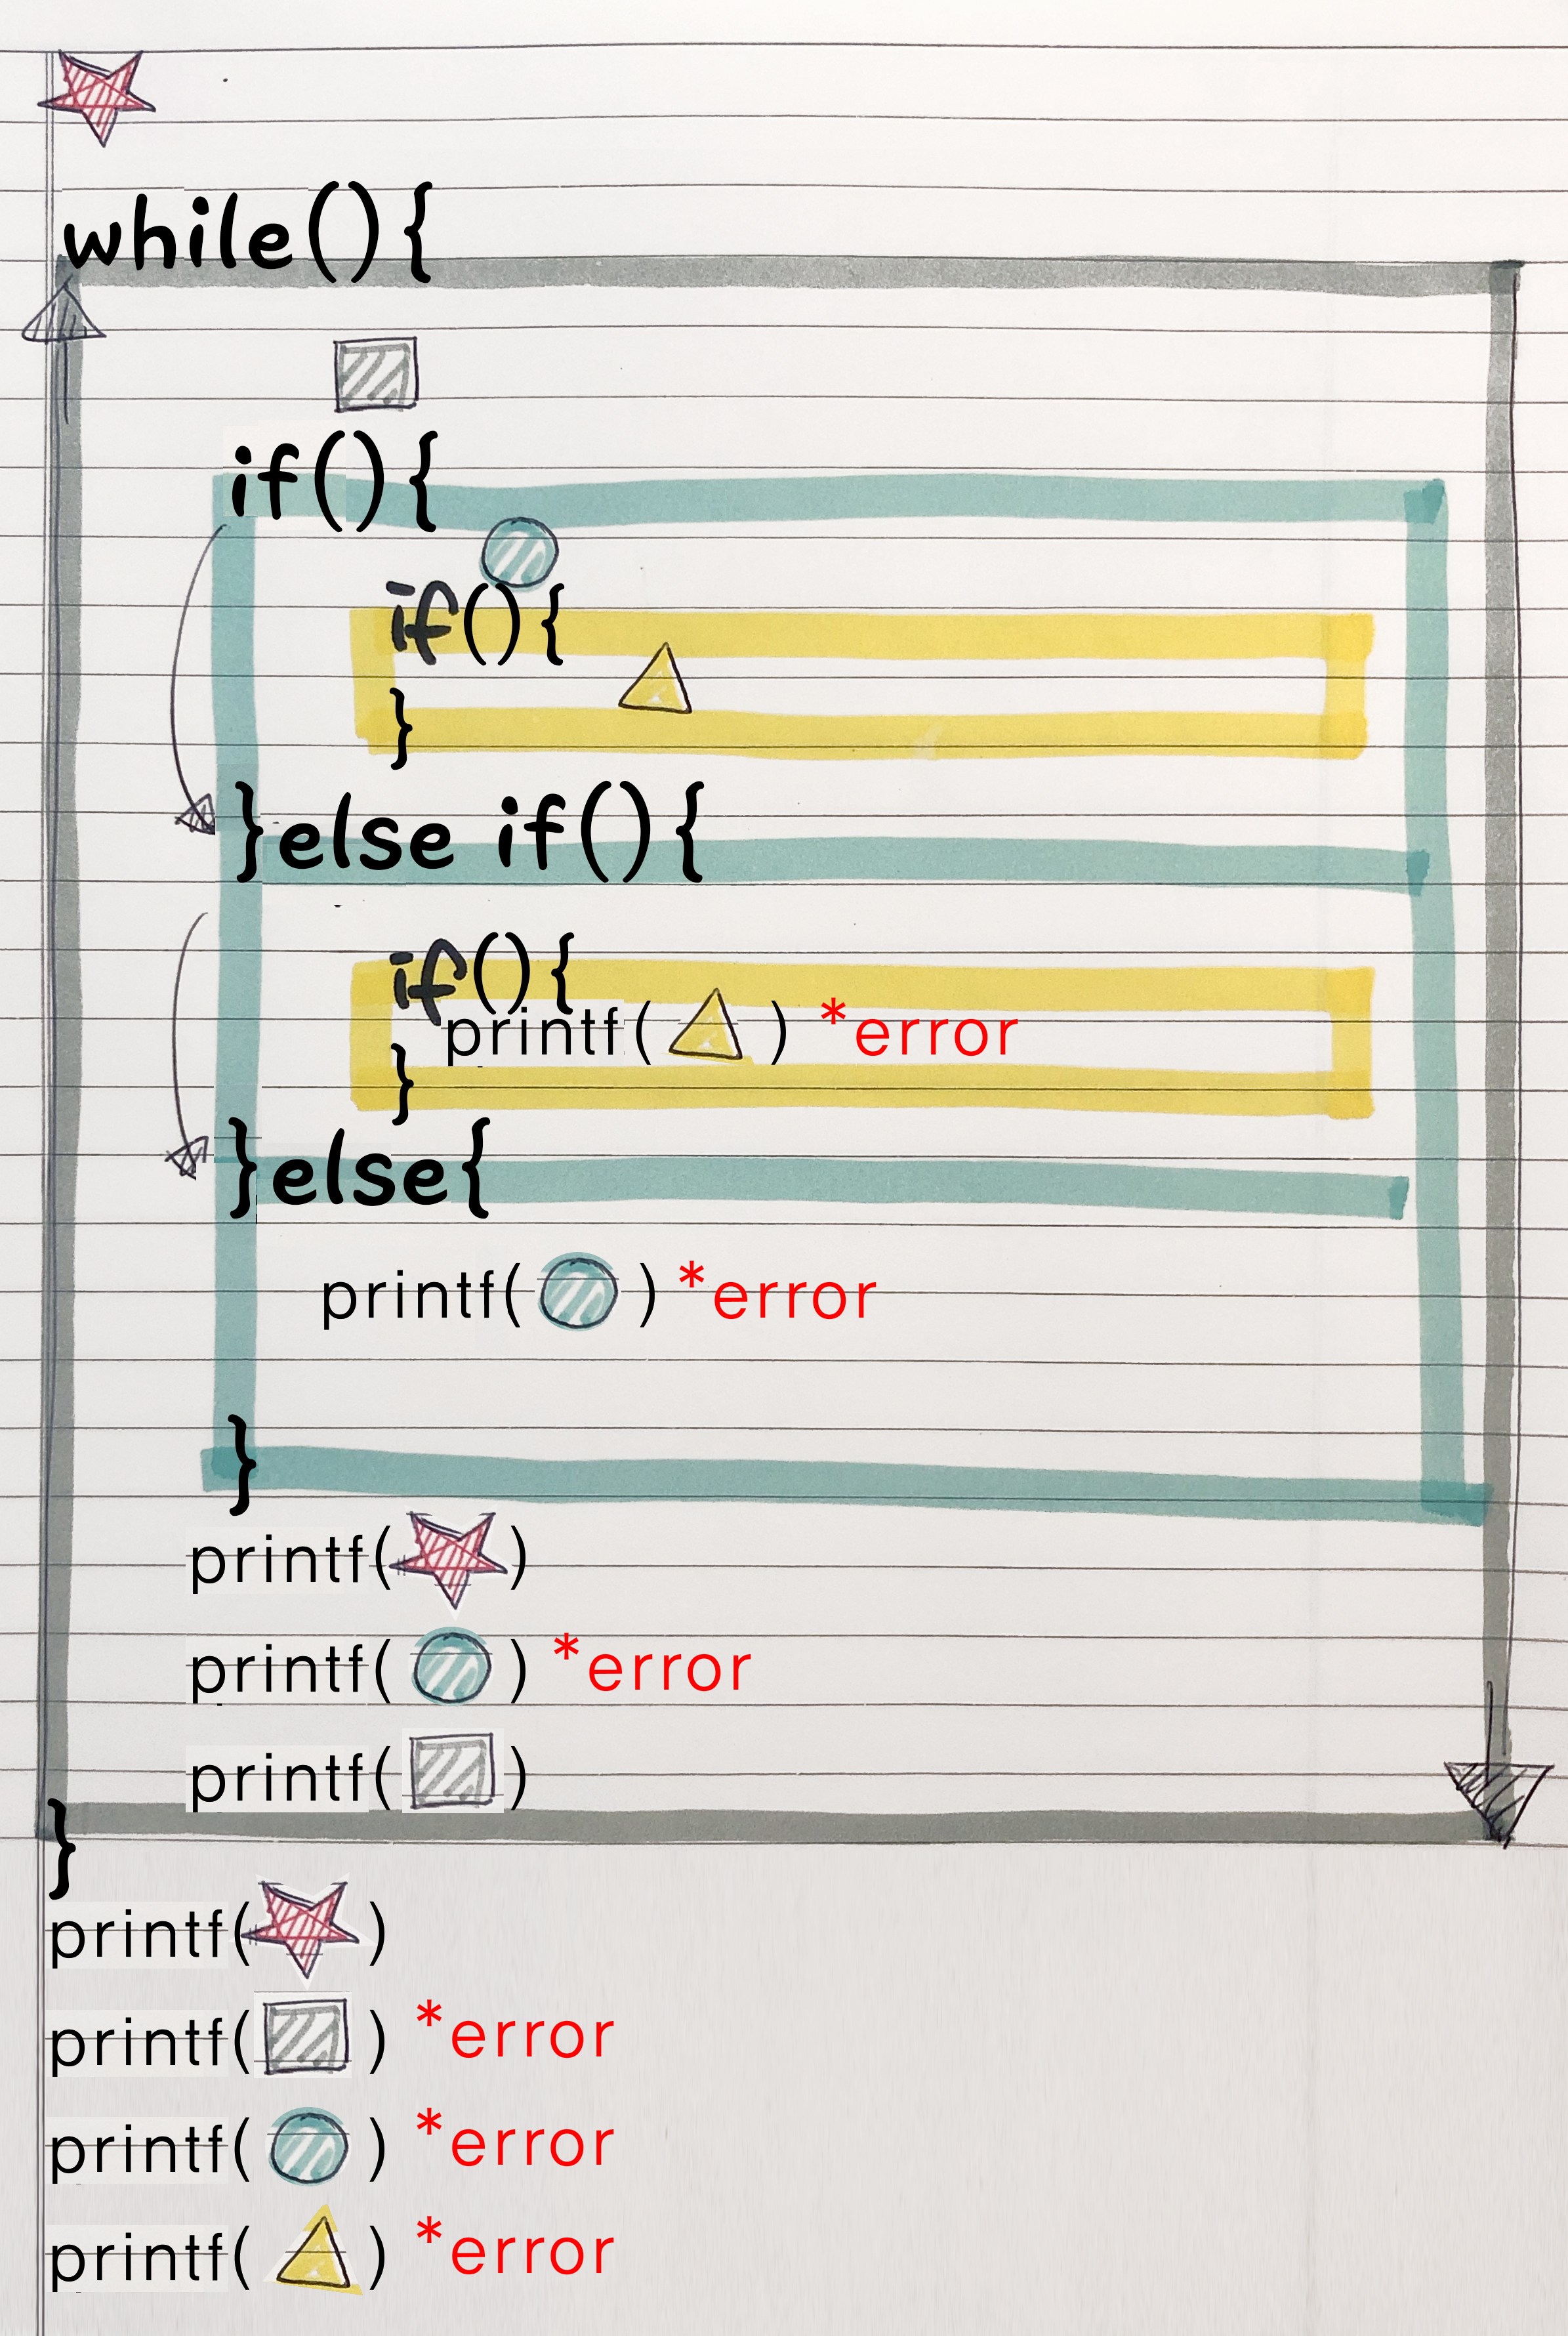 while(){
if(){
if(){
}
}else if(){
if(){
printf( ) *error
}
}else{
printf( ) *error
}
printf( )
printf( ) *error
printf( )
}
printf( )
printf( ) *error
printf( ) *error
printf( ) *error